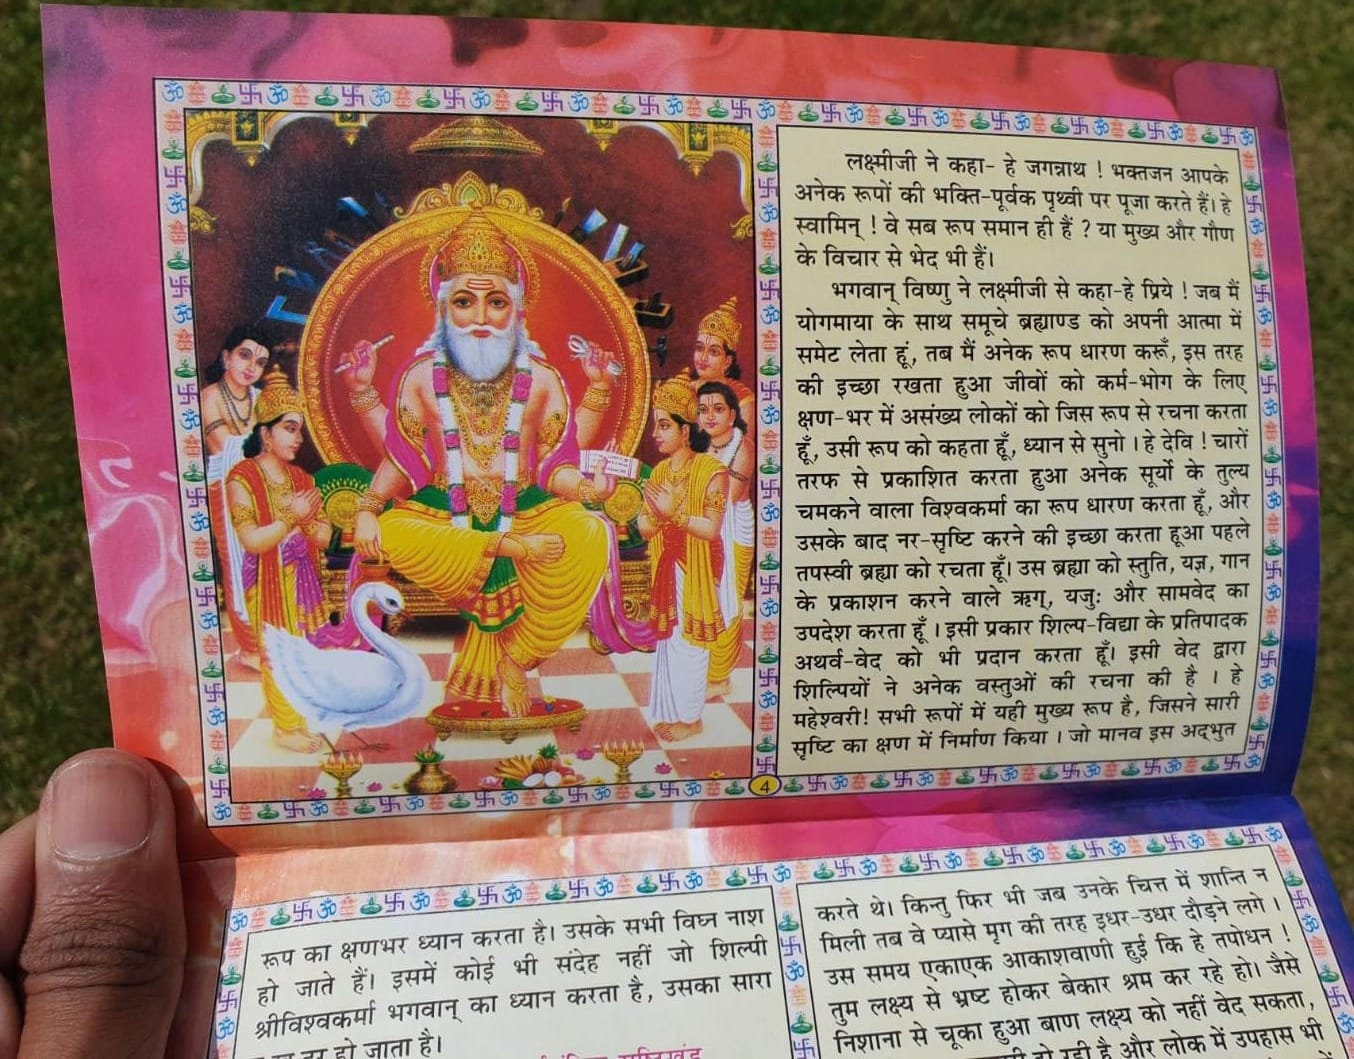 लक्ष्मीजी ने कहा- हे जगन्नाथ ! भक्तजन आपके
अनेक रूपों की भक्ति-पूर्वक पृथ्वी पर पूजा करते हैं। हे
स्वामिन् ! वे सब रूप समान ही हैं ? या मुख्य और गौण
के विचार से भेद भी हैं।
भगवान् विष्णु ने लक्ष्मीजी से कहा-हे प्रिये ! जब मैं
योगमाया के साथ समूचे ब्रह्माण्ड को अपनी आत्मा में
समेट लेता हूं, तब मैं अनेक रूप धारण करूँ, इस तरह
की इच्छा रखता हुआ जीवों को कर्म-भोग के लिए
क्षण-भर में असंख्य लोकों को जिस रूप से रचना करता
हूँ, उसी रूप को कहता हूँ, ध्यान से सुनो । हे देवि ! चारों
तरफ से प्रकाशित करता हुआ अनेक सूर्यो के तुल्य
चमकने वाला विश्वकर्मा का रूप धारण करता हूँ, और
उसके बाद नर-सृष्टि करने की इच्छा करता हूआ पहले
तपस्वी ब्रह्मा को रचता हूँ। उस ब्रह्मा को स्तुति, यज्ञ, गान
के प्रकाशन करने वाले ऋग्, यजुः और सामवेद का
उपदेश करता हूँ । इसी प्रकार शिल्प-विद्या के प्रतिपादक
अथर्व-वेद को भी प्रदान करता हूँ। इसी वेद द्वारा
शिल्पियों ने अनेक वस्तुओं की रचना की है । हे
महेश्वरी! सभी रूपों में यही मुख्य रूप है, जिसने सारी
सृष्टि का क्षण में निर्माण किया । जो मानव इस अद्भुत
4
रूप का क्षणभर ध्यान करता है। उसके सभी विघ्न नाश
हो जाते हैं। इसमें कोई भी संदेह नहीं जो शिल्पी
श्रीविश्वकर्मा भगवान् का ध्यान करता है, उसका सारा
हो जाता है।
करते थे। किन्तु फिर भी जब उनके चित्त में शान्ति न
मिली तब वे प्यासे मृग की तरह इधर-उधर दौड़ने लगे ।
उस समय एकाएक आकाशवाणी हुई कि हे तपोधन !
तुम लक्ष्य से भ्रष्ट होकर बेकार श्रम कर रहे हो। जैसे
निशाना से चूका हुआ बाण लक्ष्य को नहीं वेद सकता,
हो रही है और लोक में उपहास भी